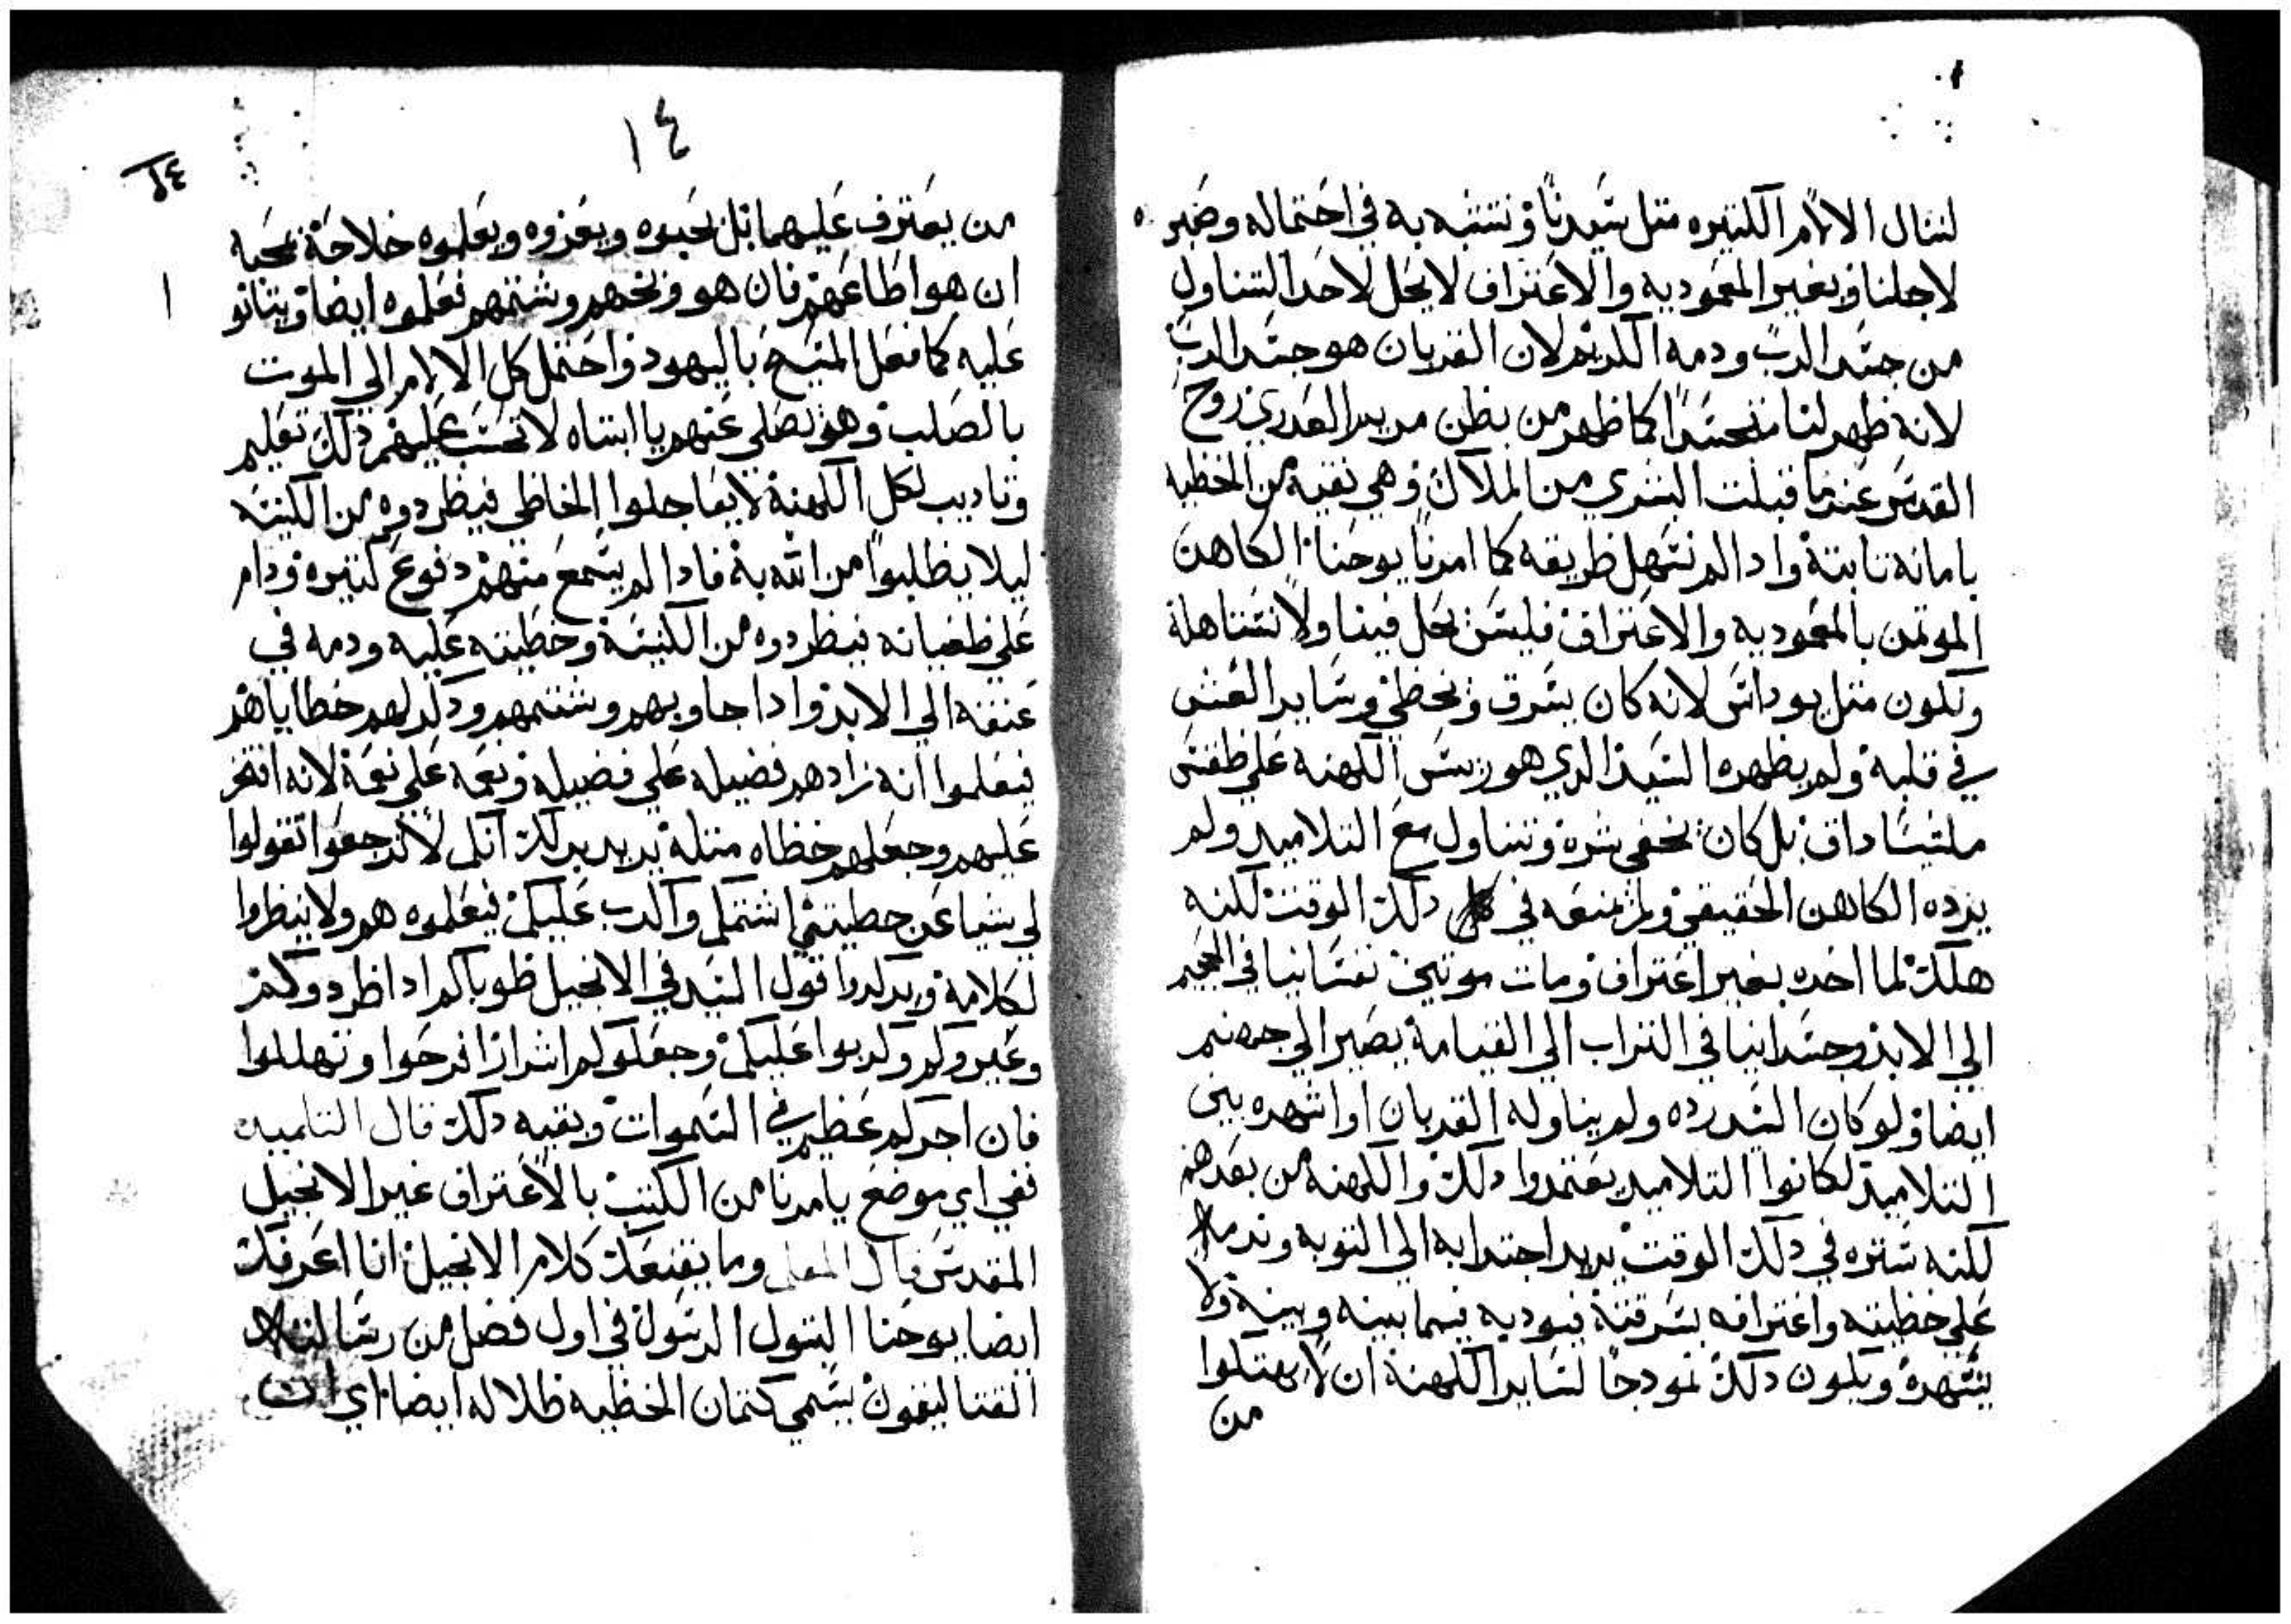 لننال الالام الكتيره متل سيدنا ونتشبه به في احتماله وصبره
لاجلنا وبغير المعموديه والاعتراف لا يحل لاحد التناول
من جسد الرب ودمه الكريم لان القربان هو جسد الرب
لانه ظهر لنا متجسدا كما ظهر من بطن مريم العدري بروح
القدس عندما قبلت البشري من الملاك وهي نقيه من الخطيه
بامانه تابتة وادا لم نسهل طريقه كما امرنا يوحنا الكاهن
الموتمن بالمعموديه والاعتراف فليس يحل فينا ولا نستاهلة
ونكون متل يوداس لانه كان يسرق ويخطي وساير الغش
في قلبه ولم يظهره السيد الدي هو رييس الكهنه علي طقس
ملشيساداق بل كان يخفي شره وتناول مع التلاميد ولم
يرده الكاهن الحقيقي ولم منعه في دلك الوقت لكنه
هلك لما اخده بغير اعتراف ومات موتين نفسانيا في الجحيم
الي الابد وجسدانيا في التراب الي القيامة يصير الي جهنم
ايضا ولو كان السيد رده ولم يناوله القربان او اشهره بين
التلاميد لكانوا التلاميد يعتمدوا دلك والكهنه من بعدهم
لكنه ستره في دلك الوقت يريد اجتدابه الي التوبه وندمه
علي خطيته واعترافه بسرقتة فيوديه فيما بينه وبينه ولا
يشهرة ويكون دلك نمودجا لساير الكهنة ان لا يهتكوا
من
١٤
من يعترف عليهما بل يحبوه ويعزوه ويعلموه خلاصة بمحبه
ان هو اطاعهم فان هو وبخهم وشتمهم فعلموه ايضا ويتانو
عليه كما فعل المسيح باليهود واحتمل كل الالام الي الموت
بالصلب وهو يصلي عنهم يا ابتاه لا تحسب عليهم دلك تعليم
وتاديب لكل الكهنة لا يعاجلوا الخاطي فيطردوه من الكنيسه
ليلا يطلبوا من الله به فادا لم يسمع منهم دفوع كتيره ودام
علي طغيانه فيطردوه من الكنيسة وخطيته عليه ودمه في
عنقه الي الابد وادا جاوبهم وشتمهم ودكر لهم خطاياهم
فيعلموا انه زادهم فضيله علي فضيله ونعمه علي نعمة لانه افتخر
عليهم وجعلهم خطاه متلة يريد بدلك انكم لا ترجعوا تقولوا
لي شيا عن خطيتي اشتمكم واكدب عليكم فيعلموه هم ولا ينظروا
لكلامة ويدكروا قول السيد في الانجيل طوباكم ادا طردوكم
وعيروكم وكدبوا عليكم وجعلوكم اشرارا افرحوا وتهللوا
فان اجركم عظيم في السموات وبقيه دلك قال التلميد
ففي اي موضع يامرنا من الكتب بالاعتراف غير الانجيل
المقدس قال المعلم وما يقنعك كلام الانجيل انا اعرفك
ايضا يوحنا البتول الرسول في اول فصل من رسالته
القتاليقون يسمي كتمان الخطيه ظلاله ايضا اي ان